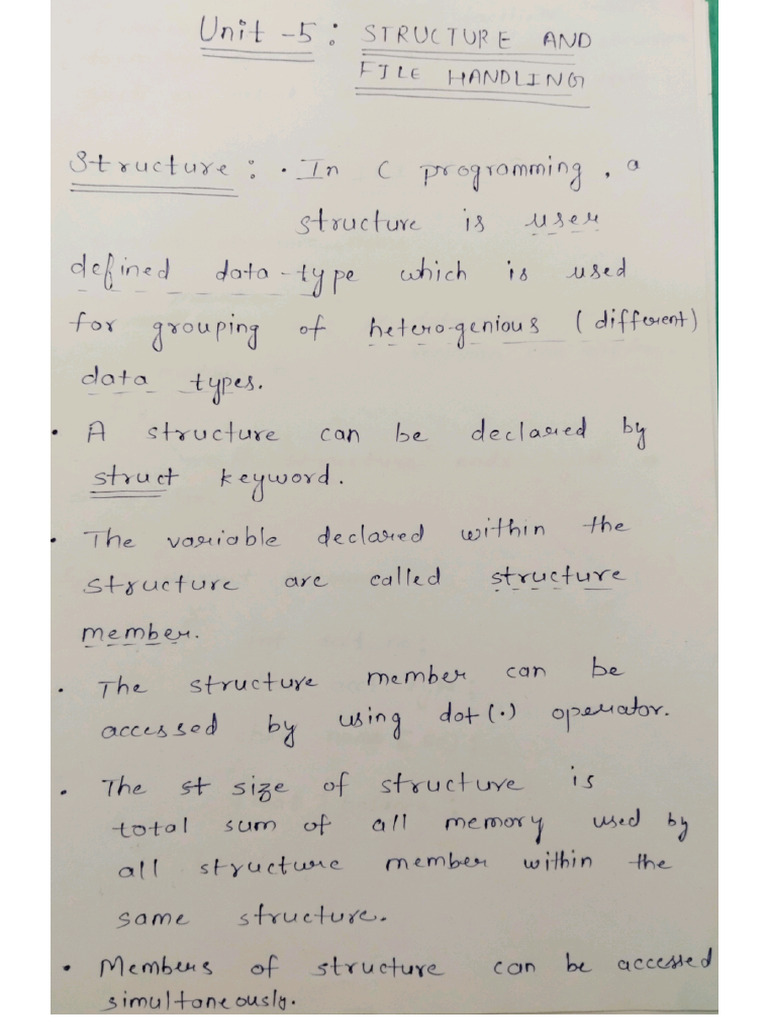 Unit -5 : STRUCTURE AND
FILE HANDLING
Structure : • In C programming, a
structure is user
defined data-type which is used
for grouping of hetero-genious (different)
data types.
• A structure can be declared by
struct keyword.
• The variable declared within the
structure are called structure
member.
• The structure member can be
accessed by using dot(.) operator.
• The st size of structure is
total sum of all memory used by
all structure member within the
same structure.
• Members of structure can be accessed
simultaneously.